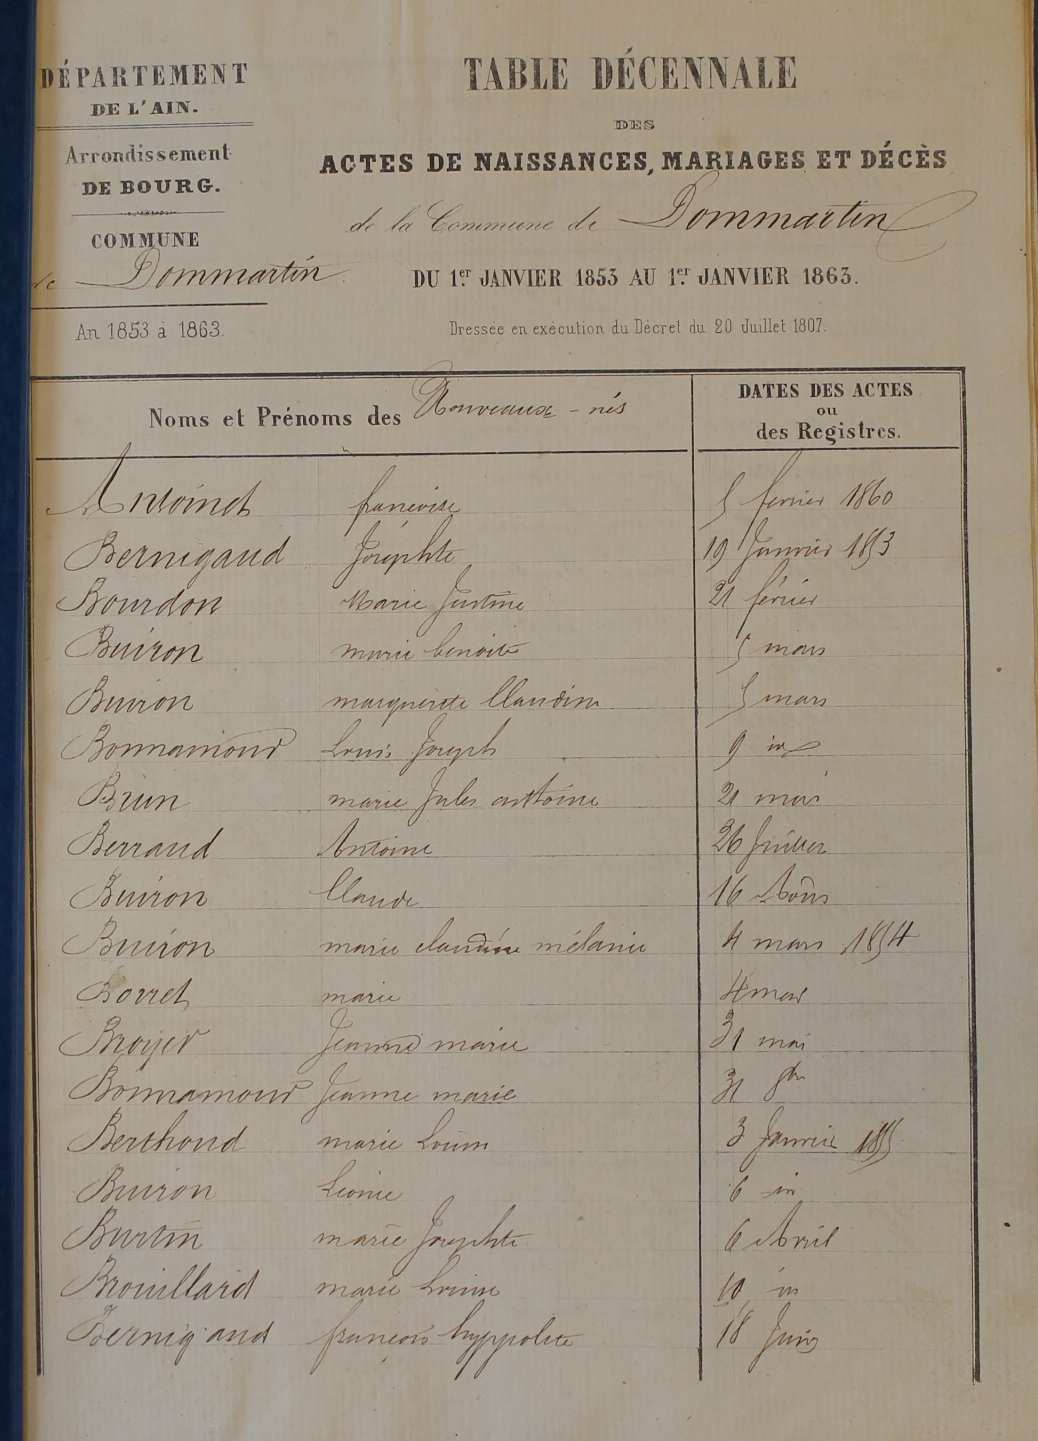 DÉPARTEMENT
DE L'AIN.
Arrondissement
DE BOURG.
COMMUNE
de Dommartin
An 1853 à 1863.
TABLE DÉCENNALE
DES
ACTES DE NAISSANCES, MARIAGES ET DÉCÈS
de la Commune de Dommartin
DU 1er JANVIER 1853 AU 1er JANVIER 1863.
Dressée en exécution du Décret du 20 Juillet 1807.
Noms et Prénoms des Nouveaux-nés
DATES DES ACTES
ou
des Registres.
Antoinet francoise 5 fevrier 1860
Bernigaud Joséphte 19 Janvier 1853
Bourdon Marie Justine 21 février
Buiron marie benoite 5 mars
Buiron marguerite Claudine 5 mars
Bonnamour Louis Joseph 9 in
Brun marie Jules antoine 21 mai
Berraud Antoine 26 Juillet
Buiron Claude 16 Aoûs
Buiron marie claudine mélanie 4 mars 1854
Borret marie 4 mar
Broyer Jeanne marie 31 mai
Bonnamour Jeanne marie 31 8bre
Berthoud marie Louise 3 Janvier 1855
Buiron Léonie 6 in
Burtin marie Josephte 6 Avril
Brouillard marie Louise 10 in
Bernigaud francois hyppolite 18 Juin